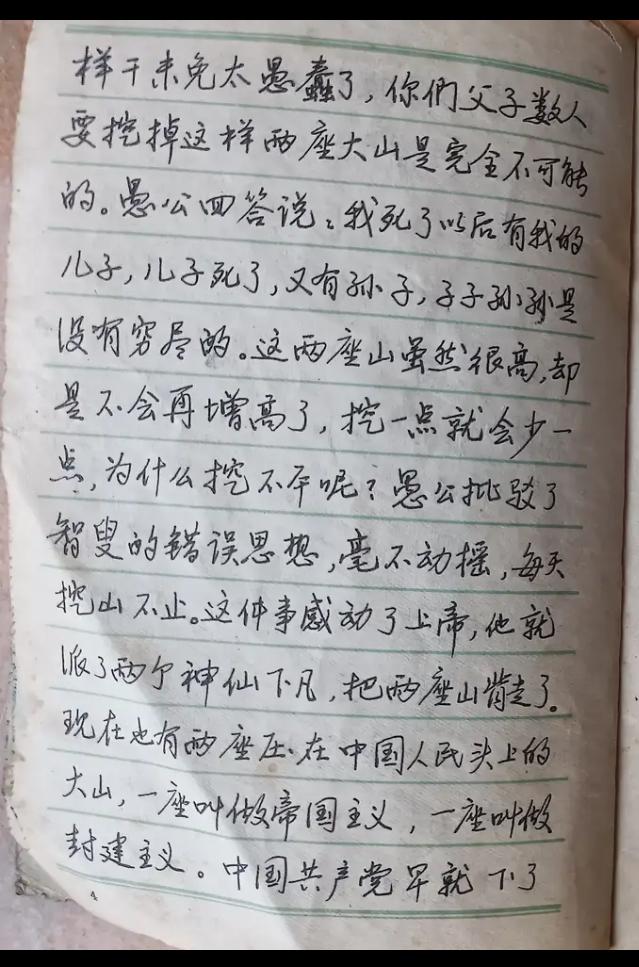 样干未免太愚蠢了，你們父子数人
要挖掉这样两座大山是完全不可能
的。愚公回答说：我死了以后有我的
儿子，儿子死了，又有孙子，子子孙孙是
没有穷尽的。这两座山虽然很高，却
是不会再增高了，挖一点就会少一
点，为什么挖不平呢？愚公批驳了
智叟的错误思想，毫不动摇，每天
挖山不止。这件事感动了上帝，他就
派了两个神仙下凡，把两座山背走了。
现在也有两座压在中国人民头上的
大山，一座叫做帝国主义，一座叫做
封建主义。中国共产党早就下了
4